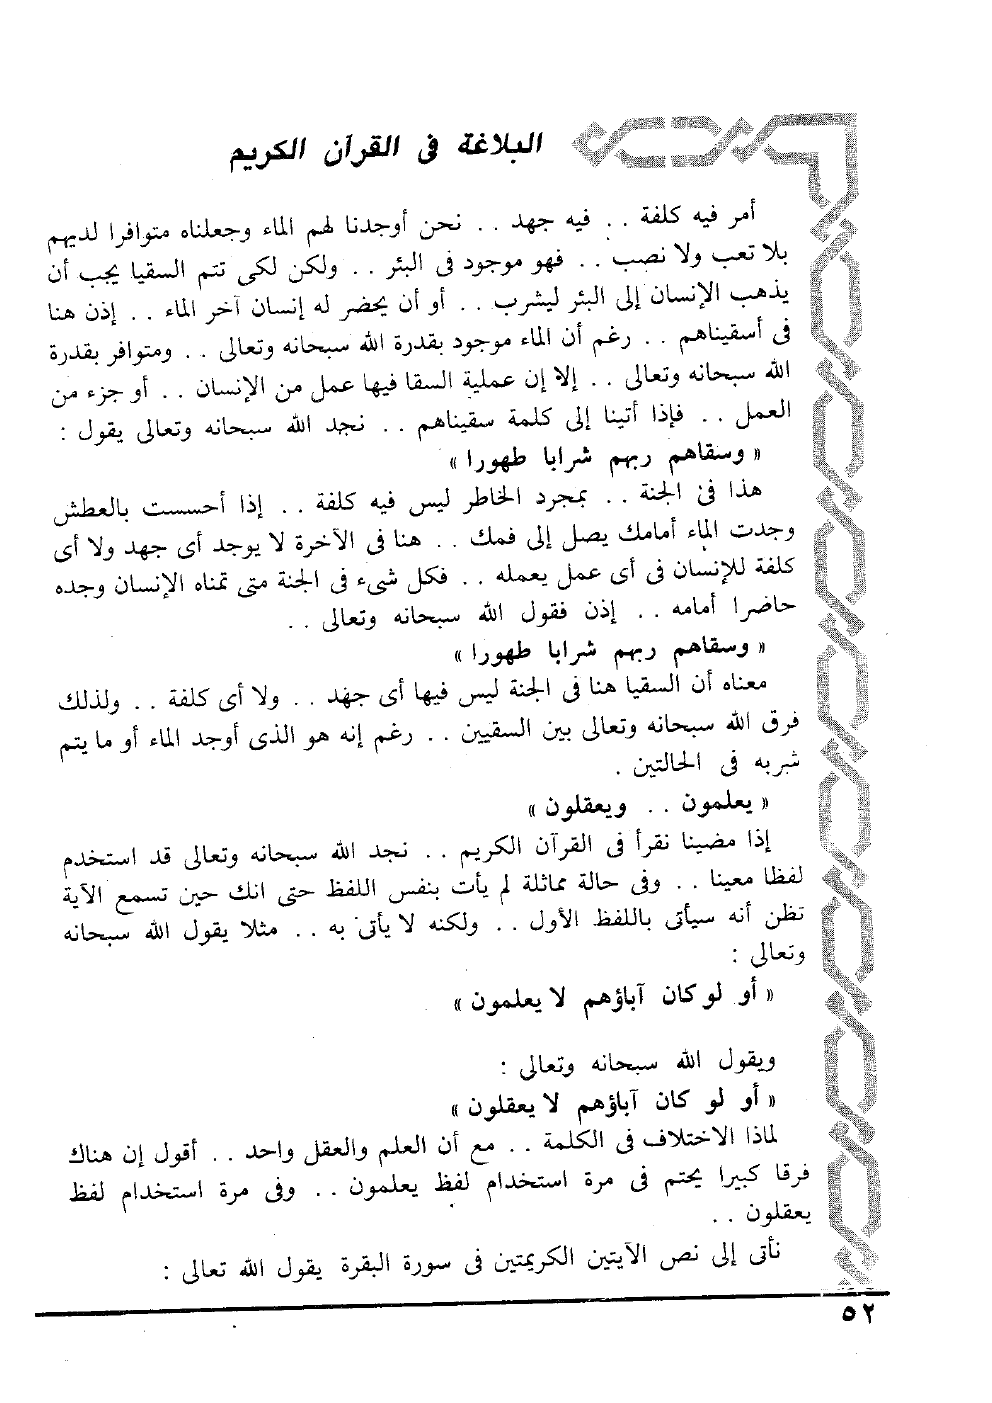 البلاغة فى القرآن الكريم
أمر فيه كلفة . . فيه جهد . . نحن أوجدنا لهم الماء وجعلناه متوافرا لديهم
بلا تعب ولا نصب . . فهو موجود فى البئر . . ولكن لكى تتم السقيا يجب أن
يذهب الإنسان إلى البئر ليشرب . . أو أن يحضر له إنسان آخر الماء . . إذن هنا
فى أسقيناهم . . رغم أن الماء موجود بقدرة الله سبحانه وتعالى . . ومتوافر بقدرة
الله سبحانه وتعالى . . إلا إن عملية السقا فيها عمل من الإنسان . . أو جزء من
العمل . . فإذا أتينا إلى كلمة سقيناهم . . نجد الله سبحانه وتعالى يقول :
« وسقاهم ربهم شرابا طهورا »
هذا فى الجنة . . بمجرد الخاطر ليس فيه كلفة . . إذا أحسست بالعطش
وجدت الماء أمامك يصل إلى فمك . . هنا فى الآخرة لا يوجد أى جهد ولا أى
كلفة للإنسان فى أى عمل يعمله . . فكل شىء فى الجنة متى تمناه الإنسان وجده
حاضرا أمامه . . إذن فقول الله سبحانه وتعالى . .
« وسقاهم ربهم شرابا طهورا »
معناه أن السقيا هنا فى الجنة ليس فيها أى جهد . . ولا أى كلفة . . ولذلك
فرق الله سبحانه وتعالى بين السقيين . . رغم إنه هو الذى أوجد الماء أو ما يتم
شربه فى الحالتين .
« يعلمون . . ويعقلون »
إذا مضينا نقرأ فى القرآن الكريم . . نجد الله سبحانه وتعالى قد استخدم
لفظا معينا . . وفى حالة مماثلة لم يأت بنفس اللفظ حتى انك حين تسمع الآية
تظن أنه سيأتى باللفظ الأول . . ولكنه لا يأتى به . . مثلا يقول الله سبحانه
وتعالى :
« أو لو كان آباؤهم لا يعلمون »
ويقول الله سبحانه وتعالى :
« أو لو كان آباؤهم لا يعقلون »
لماذا الاختلاف فى الكلمة . . مع أن العلم والعقل واحد . . أقول إن هناك
فرقا كبيرا يحتم فى مرة استخدام لفظ يعلمون . . وفى مرة استخدام لفظ
يعقلون . .
نأتى إلى نص الآيتين الكريمتين فى سورة البقرة يقول الله تعالى :
٥٢